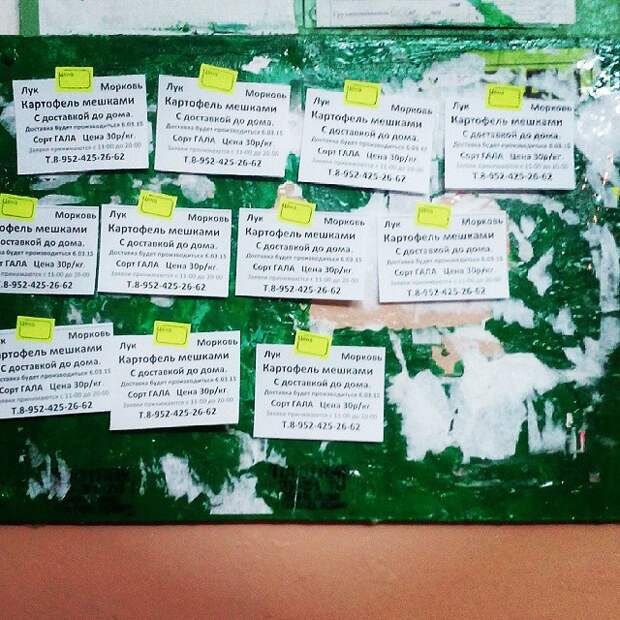 Цена
Лук Морковь
Картофель мешками
С доставкой до дома.
Доставка будет производиться 6.03.15
Сорт ГАЛА Цена 30р/кг.
Заявки принимаются с 11-00 до 20-00
Т.8-952-425-26-62
Цена
Лук Морковь
Картофель мешками
С доставкой до дома.
Доставка будет производиться 6.03.15
Сорт ГАЛА Цена 30р/кг.
Заявки принимаются с 11-00 до 20-00
Т.8-952-425-26-62
Цена
Лук Морковь
Картофель мешками
С доставкой до дома.
Доставка будет производиться 6.03.15
Сорт ГАЛА Цена 30р/кг.
Заявки принимаются с 11-00 до 20-00
Т.8-952-425-26-62
Цена
Лук Морковь
Картофель мешками
С доставкой до дома.
Доставка будет производиться 6.03.15
Сорт ГАЛА Цена 30р/кг.
Заявки принимаются с 11-00 до 20-00
Т.8-952-425-26-62
Цена
Морковь
офель мешками
оставкой до дома.
будет производиться 6.03.15
ГАЛА Цена 30р/кг.
принимаются с 11-00 до 20-00
8-952-425-26-62
Цена
Лук Морковь
Картофель мешками
С доставкой до дома.
Доставка будет производиться 6.03.15
Сорт ГАЛА Цена 30р/кг.
Заявки принимаются с 11-00 до 20-00
Т.8-952-425-26-62
Цена
Лук Морковь
Картофель мешками
С доставкой до дома.
Доставка будет производиться 6.03.15
Сорт ГАЛА Цена 30р/кг.
Заявки принимаются с 11-00 до 20-00
Т.8-952-425-26-62
Цена
Лук Морковь
Картофель мешками
С доставкой до дома.
Доставка будет производиться 6.03.15
Сорт ГАЛА Цена 30р/кг.
Заявки принимаются с 11-00 до 20-00
Т.8-952-425-26-62
Цена
Морковь
артофель мешками
С доставкой до дома.
Доставка будет производиться 6.03.15
Сорт ГАЛА Цена 30р/кг.
Заявки принимаются с 11-00 до 20-00
Т.8-952-425-26-62
Цена
Лук Морковь
Картофель мешками
С доставкой до дома.
Доставка будет производиться 6.03.15
Сорт ГАЛА Цена 30р/кг.
Заявки принимаются с 11-00 до 20-00
Т.8-952-425-26-62
Цена
Лук Морковь
Картофель мешками
С доставкой до дома.
Доставка будет производиться 6.03.15
Сорт ГАЛА Цена 30р/кг.
Заявки принимаются с 11-00 до 20-00
Т.8-952-425-26-62